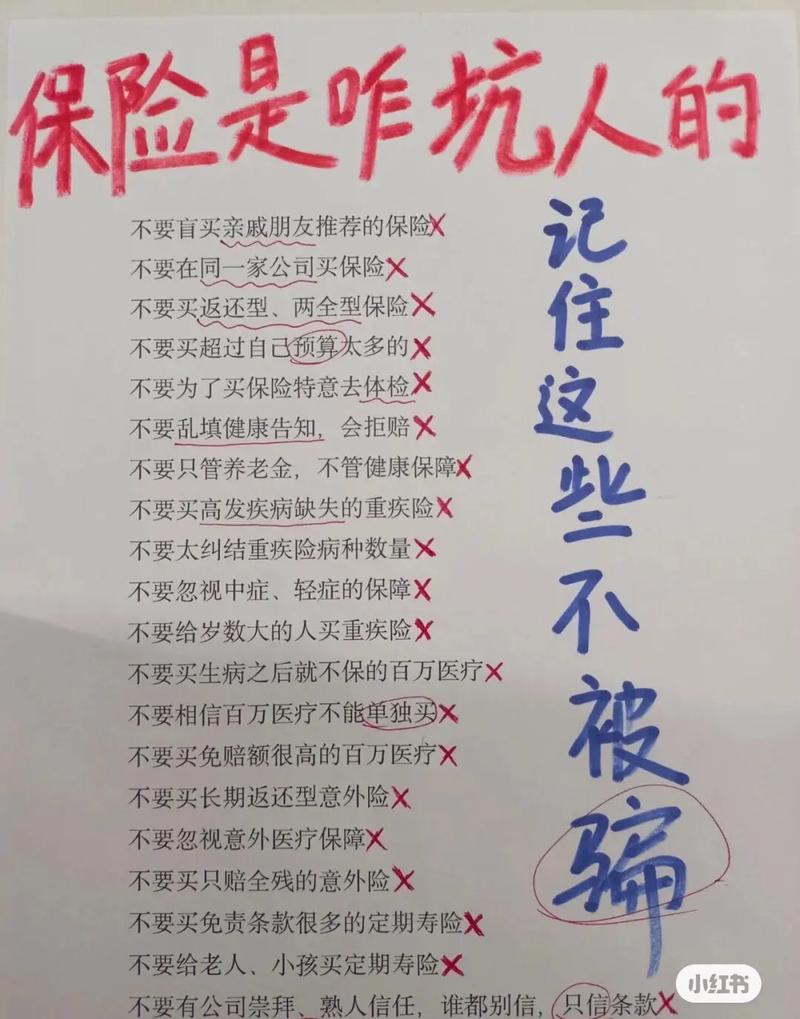 保险是咋坑人的
不要盲买亲戚朋友推荐的保险X
不要在同一家公司买保险X
不要买返还型、两全型保险X
不要买超过自己预算太多的X
不要为了买保险特意去体检X
不要乱填健康告知，会拒赔X
不要只管养老金，不管健康保障X
不要买高发疾病缺失的重疾险X
不要太纠结重疾险病种数量X
不要忽视中症、轻症的保障X
不要给岁数大的人买重疾险X
不要买生病之后就不保的百万医疗X
不要相信百万医疗不能单独买X
不要买免赔额很高的百万医疗X
不要买长期返还型意外险X
不要忽视意外医疗保障X
不要买只赔全残的意外险X
不要买免责条款很多的定期寿险X
不要给老人、小孩买定期寿险X
不要有公司崇拜、熟人信任，谁都别信，只信条款X
记住这些不被骗
小红书